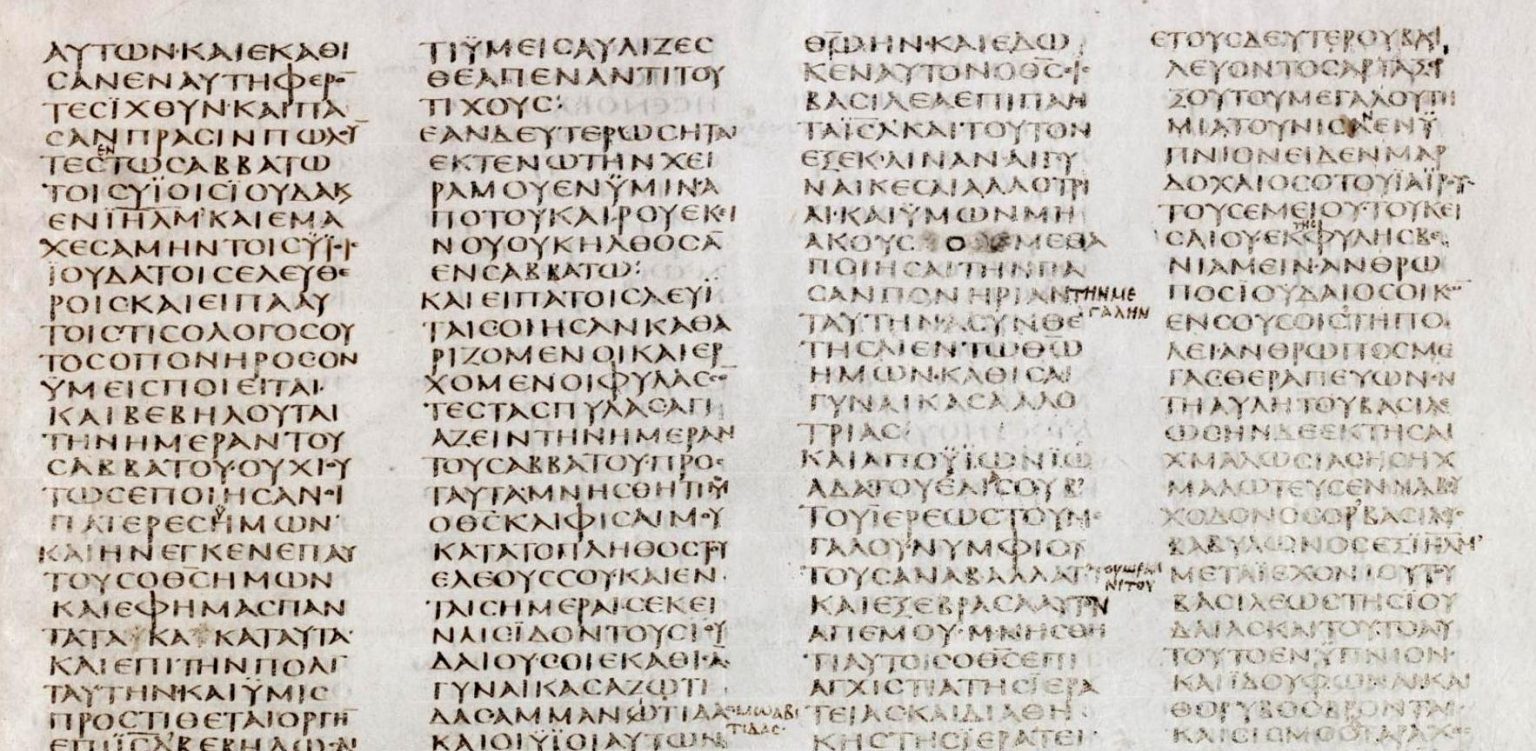 ΑΥΤΩΝ·ΚΑΙΕΚΑΘΙ
ϹΑΝΕΝΑΥΤΗΦΕΡΟ
ΤΕϹΪΧΘΥΝ·ΚΑΙΠΑ
ϹΑΝΠΡΑϹΙΝΠΩΛΟΥ
ΕΝ
ΤΕϹΤΩϹΑΒΒΑΤΩ
ΤΟΙϹΥΪΟΙϹΪΟΥΔΑΚ
ΕΝΪΗΛΜ΄ΚΑΙΕΜΑ
ΧΕϹΑΜΗΝΤΟΙϹΥΪΟΙ
ΪΟΥΔΑΤΟΙϹΕΛΕΥΘΕ
ΡΟΙϹΚΑΙΕΙΠΑΑΥ
ΤΟΙϹΤΙϹΟΛΟΓΟϹΟΥ
ΤΟϹΟΠΟΝΗΡΟϹΟΝ
ΫΜΕΙϹΠΟΙΕΙΤΑΙ·
ΚΑΙΒΕΒΗΛΟΥΤΑΙ
ΤΗΝΗΜΕΡΑΝΤΟΥ
ϹΑΒΒΑΤΟΥ·ΟΥΧΙΟΥ
ΤΩϹΕΠΟΙΗϹΑΝΟΙ
ΠΑΤΕΡΕϹΗΜΩΝ
ΚΑΙΗΝΕΓΚΕΝΕΠΑΥ
ΤΟΥϹΟΘϹΗΜΩΝ
ΚΑΙΕΦΗΜΑϹΠΑΝ
ΤΑΤΑ ΚΑ ΚΑΤΑΥΤΑ
ΚΑΙΕΠΙΤΗΝΠΟΛΙ
ΤΑΥΤΗΝ·ΚΑΙΫΜΙϹ
ΠΡΟϹΤΙΘΕΤΑΙΟΡΓΗ
ΤΙΫΜΕΙϹΑΥΛΙΖΕϹ
ΘΕΑΠΕΝΑΝΤΙΤΟΥ
ΤΙΧΟΥϹ:
ΕΑΝΔΕΥΤΕΡΩϹΗΤΑΙ
ΕΚΤΕΝΩΤΗΝΧΕΙ
ΡΑΜΟΥΕΝΫΜΙΝΑ
ΠΟΤΟΥΚΑΙΡΟΥΕΚΙ
ΝΟΥΟΥΚΗΛΘΟϹΑ
ΕΝϹΑΒΒΑΤΩ:
ΚΑΙΕΙΠΑΤΟΙϹΛΕΥΪ
ΤΑΙϹΟΙΗϹΑΝΚΑΘΑ
ΡΙΖΟΜΕΝΟΙΚΑΙΕΡ
ΧΟΜΕΝΟΙΦΥΛΑϹϹΟ
ΤΕϹΤΑϹΠΥΛΑϹΑΓΙ
ΑΖΕΙΝΤΗΝΗΜΕΡΑΝ
ΤΟΥϹΑΒΒΑΤΟΥ·ΠΡΟϹ
ΤΑΥΤΑΜΝΗϹΘΗΤΙΜΟΥ
ΟΘϹΚΑΙΦΙϹΑΙΜΟΥ
ΚΑΤΑΤΟΠΛΗΘΟϹΤΟΥ
ΕΛΕΟΥϹϹΟΥΚΑΙΕΝ
ΤΑΙϹΗΜΕΡΑΙϹΕΚΕΙ
ΝΑΙϹΪΔΟΝΤΟΥϹΙΟΥ
ΔΑΙΟΥϹΟΙΕΚΑΘΙϹΑ
ΓΥΝΑΙΚΑϹΑΖΩΤΙ
ΔΑϹΑΜΜΑΝΩΤΙΔΑϹΜΩΑΒΙ
ΤΙΔΑϹ
ΚΑΙΟΙΫΪΟΙΑΥΤΩΝ
ΘΩΗΝ·ΚΑΙΕΔΩ
ΚΕΝΑΥΤΟΝΟΘϹΟΙϹ
ΒΑϹΙΛΕΑΕΠΙΠΑΝ
ΤΑΪϹΑΚΑΙΤΟΥΤΟΝ
ΕΞΕΚΛΙΝΑΝΑΙΓΥ
ΝΑΙΚΕϹΑΙΑΛΛΟΤΡΙ
ΑΙ·ΚΑΙΫΜΩΝΜΗ
ΑΚΟΥϹΟΜΕΘΑ
ΠΟΙΗϹΑΙΤΗΝΠΑ
ϹΑΝΠΟΝΗΡΙΑΝΤΗΝΜΕ
ΓΑΛΗΝ
ΤΑΥΤΗΝΑϹΥΝΘΕ
ΤΗϹΑΙΕΝΤΩΘΩ
ΗΜΩΝ·ΚΑΘΙϹΑΙ
ΓΥΝΑΙΚΑϹΑΛΛΟ
ΤΡΙΑϹ:
ΚΑΙΑΠΟΫΪΩΝΪΩ
ΑΔΑΤΟΥΕΛΙϹΟΥΒ
ΤΟΥΪΕΡΕΩϹΤΟΥΜΕ
ΓΑΛΟΥΝΥΜΦΙΟΥ
ΤΟΥϹΑΝΑΒΑΛΛΑΤΤΟΥΩΡΑΙ
ΝΙΤΟΥ
ΚΑΙΕΞΕΒΡΑϹΑΑΥΤΟΝ
ΑΠΕΜΟΥ·ΜΝΗϹΘΗ
ΤΙΑΥΤΟΙϹΟΘϹΕΠΙ
ΑΓΧΙϹΤΙΑΤΗϹΪΕΡΑ
ΤΕΙΑϹΚΑΙΔΙΑΘΗ
ΚΗϹΤΗϹΪΕΡΑΤΕΙ
ΕΤΟΥϹΔΕΥΤΕΡΟΥΒΑϹΙ
ΛΕΥΟΝΤΟϹΑΡΤΑΞΕΡ
ΞΟΥΤΟΥΜΕΓΑΛΟΥΤΗ
ΜΙΑΤΟΥΝΙϹΑΝΕΝΫ
ΠΝΙΟΝΕΙΔΕΝΜΑΡ
ΔΟΧΑΙΟϹΟΤΟΥΪΑΪΡΟΥ
ΤΟΥϹΕΜΕΙΟΥ·ΤΟΥΚΕΙ
ΤΗϹ
ϹΑΙΟΥΕΚΦΥΛΗϹΒΕ
ΝΙΑΜΕΙΝ·ΑΝΘΡΩ
ΠΟϹΪΟΥΔΑΙΟϹΟΙΚΩ
ΕΝϹΟΥϹΟΙϹΤΗΠΟ
ΛΕΙ·ΑΝΘΡΩΠΟϹΜΕ
ΓΑϹΘΕΡΑΠΕΥΩΝΕΝ
ΤΗΑΥΛΗΤΟΥΒΑϹΙΛΕ
ΩϹΗΝΔΕΕΚΤΗϹΑΙ
ΧΜΑΛΩϹΙΑϹΗϹΗΧ
ΜΑΛΩΤΕΥϹΕΝΝΑΒΟΥ
ΧΟΔΟΝΟϹΟΡΒΑϹΙΛΕΥϹ
ΒΑΒΥΛΩΝΟϹΕΞΪΗΛΜ΄
ΜΕΤΑΪΕΧΟΝΙΟΥΤΟΥ
ΒΑϹΙΛΕΩϹΤΗϹΪΟΥ
ΔΑΙΑϹΚΑΙΤΟΥΤΟΑΥ
ΤΟΥΤΟΕΝΥΠΝΙΟΝ·
ΚΑΙΪΔΟΥΦΩΝΑΙΚΑΙ
ΘΟΡΥΒΟϹΒΡΟΝΤΑΙ
ΚΑΙϹΙϹΜΟϹΤΑΡΑΧΟϹ